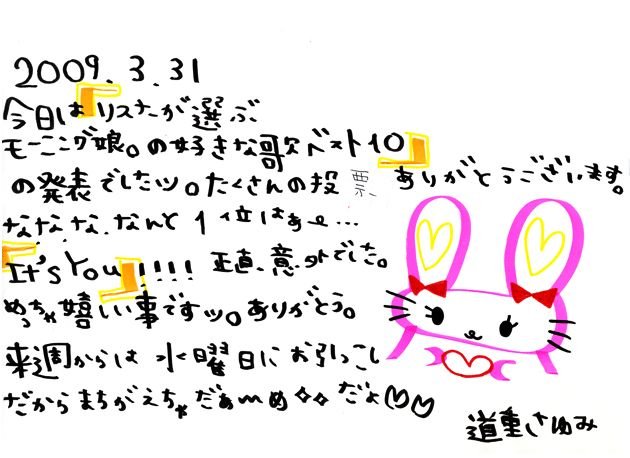 2009.3.31
今日は『リスナーが選ぶ
モーニング娘。の好きな歌ベスト10』
の発表でしたッ。たくさんの投票、ありがとうございます。
なななな、なんと1位はぁ〜…
『It's You』!!!! 正直、意外でした。
めっちゃ嬉しい事ですッ。ありがとう。
来週からは水曜日にお引っこし
だからまちがえちゃだぁ〜め✧✧だよ♡♡
道重さゆみ